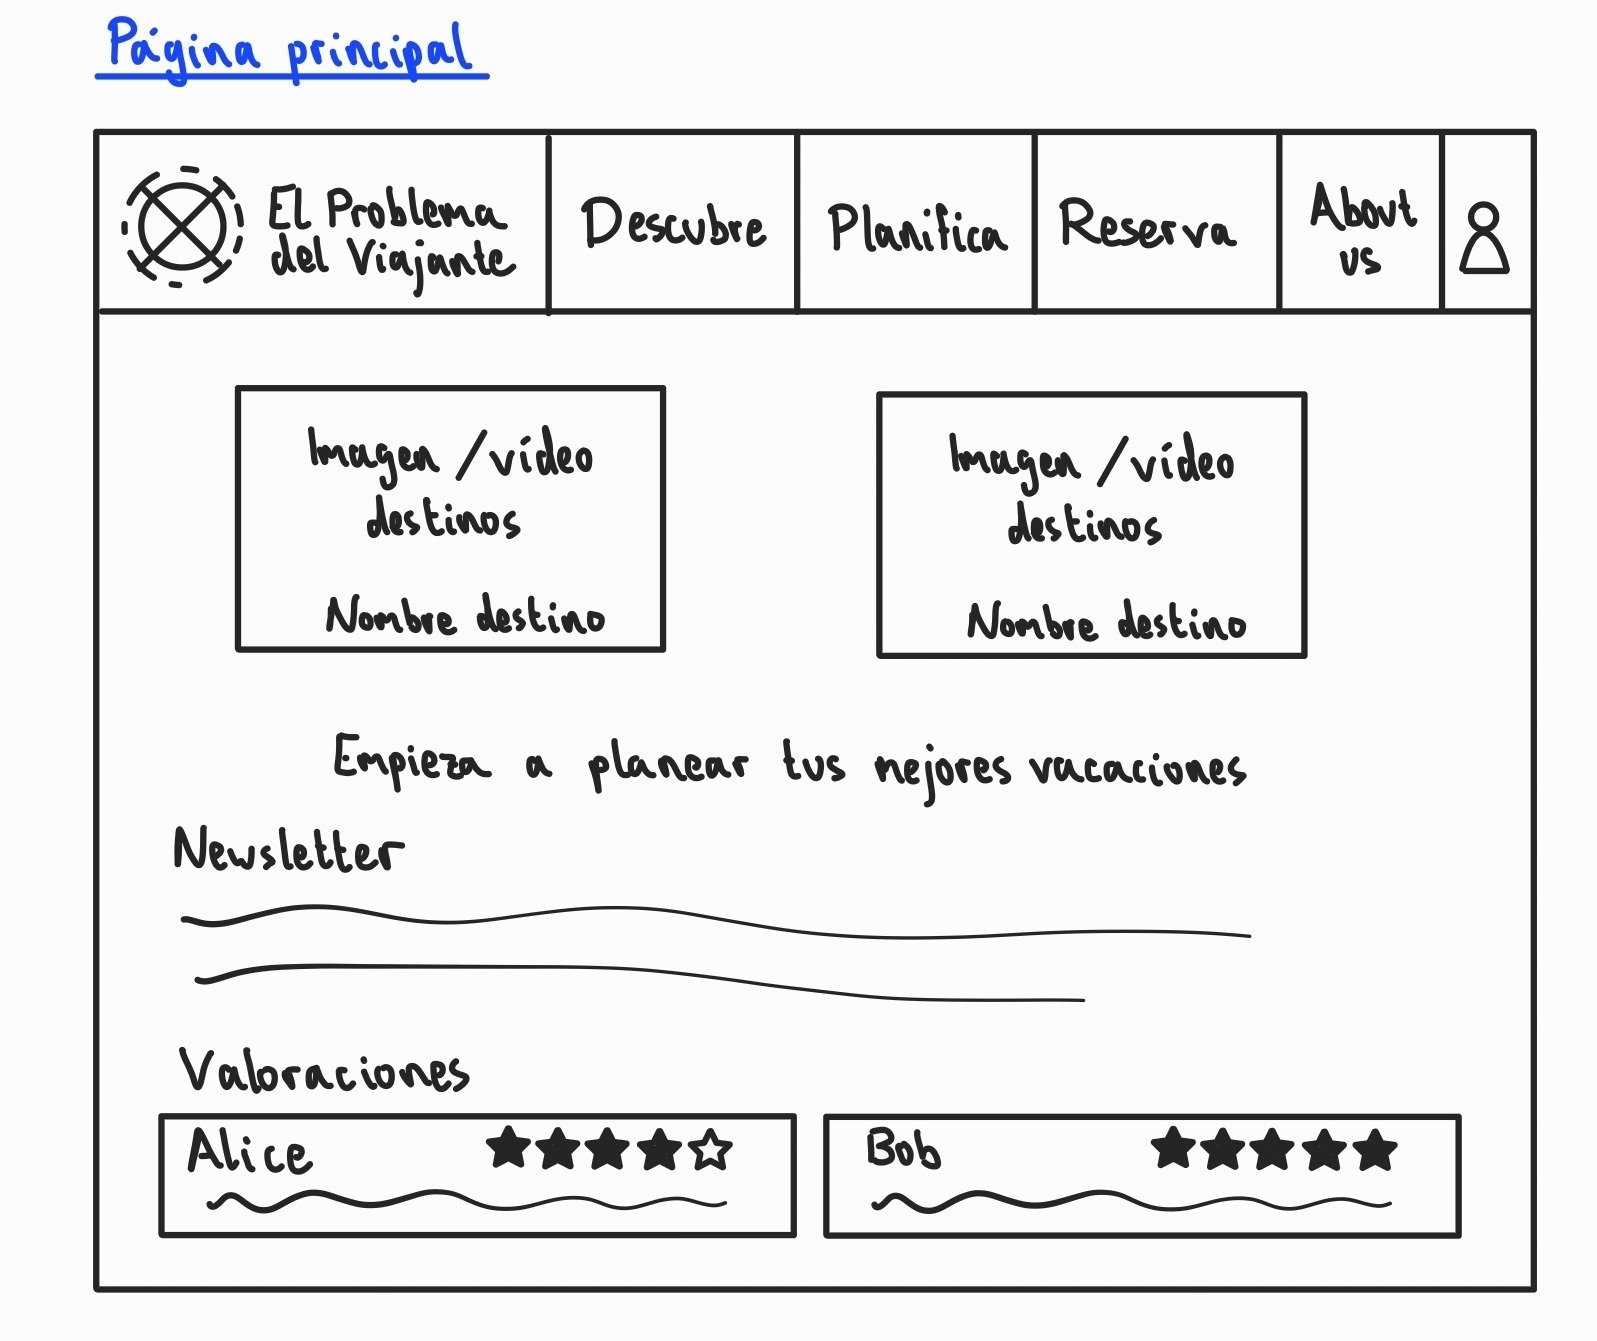 Página principal
El Problema
del Viajante
Descubre
Planifica
Reserva
About
us
Imagen / vídeo
destinos
Nombre destino
Imagen / vídeo
destinos
Nombre destino
Empieza a planear tus mejores vacaciones
Newsletter
Valoraciones
Alice
Bob